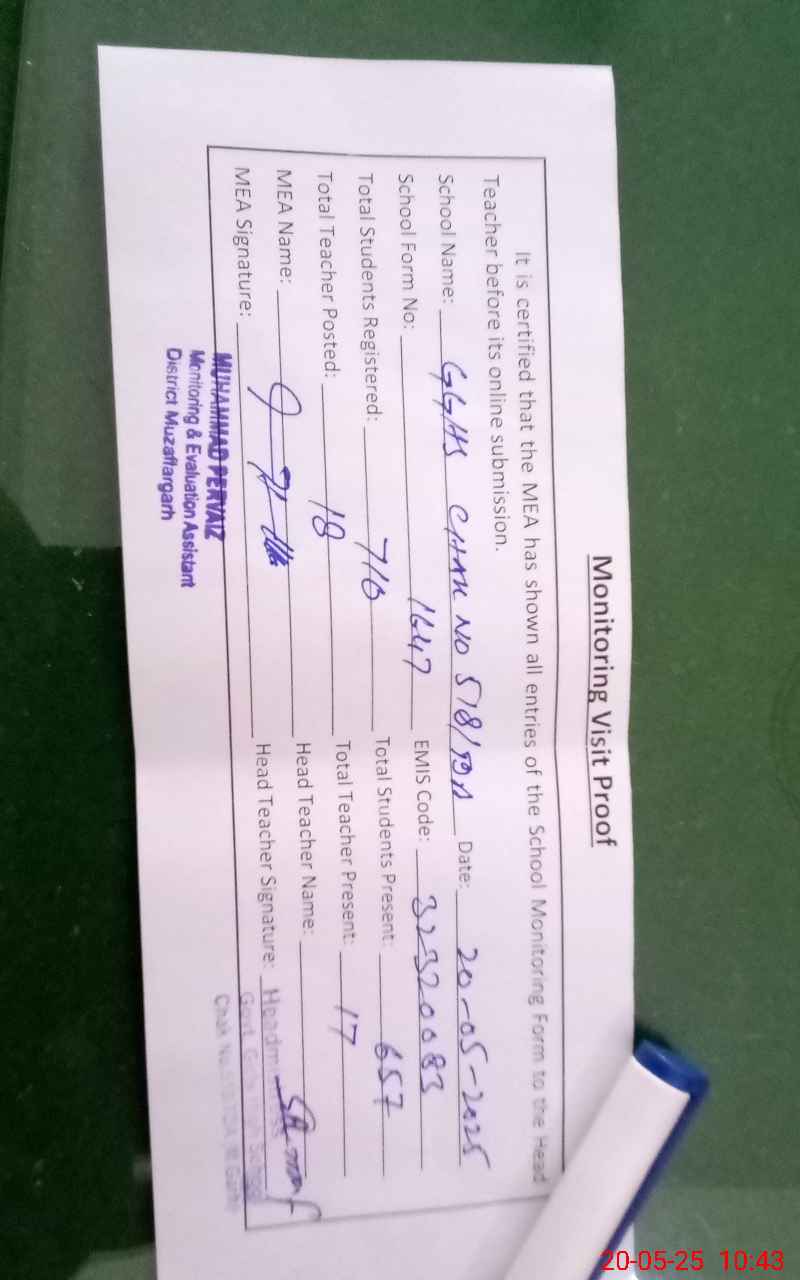 Monitoring Visit Proof
It is certified that the MEA has shown all entries of the School Monitoring Form to the Head
Teacher before its online submission.
School Name: GGHS CHAK NO 518/TDA Date: 20-05-2025
School Form No: 1647 EMIS Code: 32320083
Total Students Registered: 710 Total Students Present: 657
Total Teacher Posted: 18 Total Teacher Present: 17
MEA Name: Head Teacher Name:
MEA Signature: Head Teacher Signature:
MUHAMMAD PERVAIZ
Monitoring & Evaluation Assistant
District Muzaffargarh
Govt. Girls High School
Chak No.
20-05-25 10:43